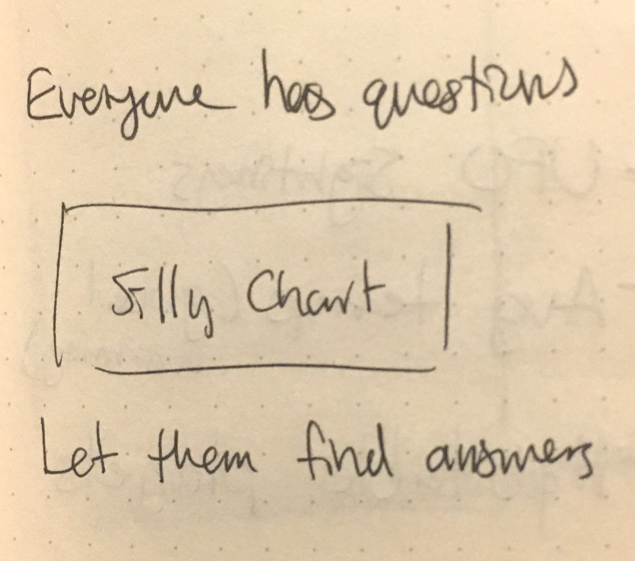 Everyone has questions
Silly Chart
Let them find answers